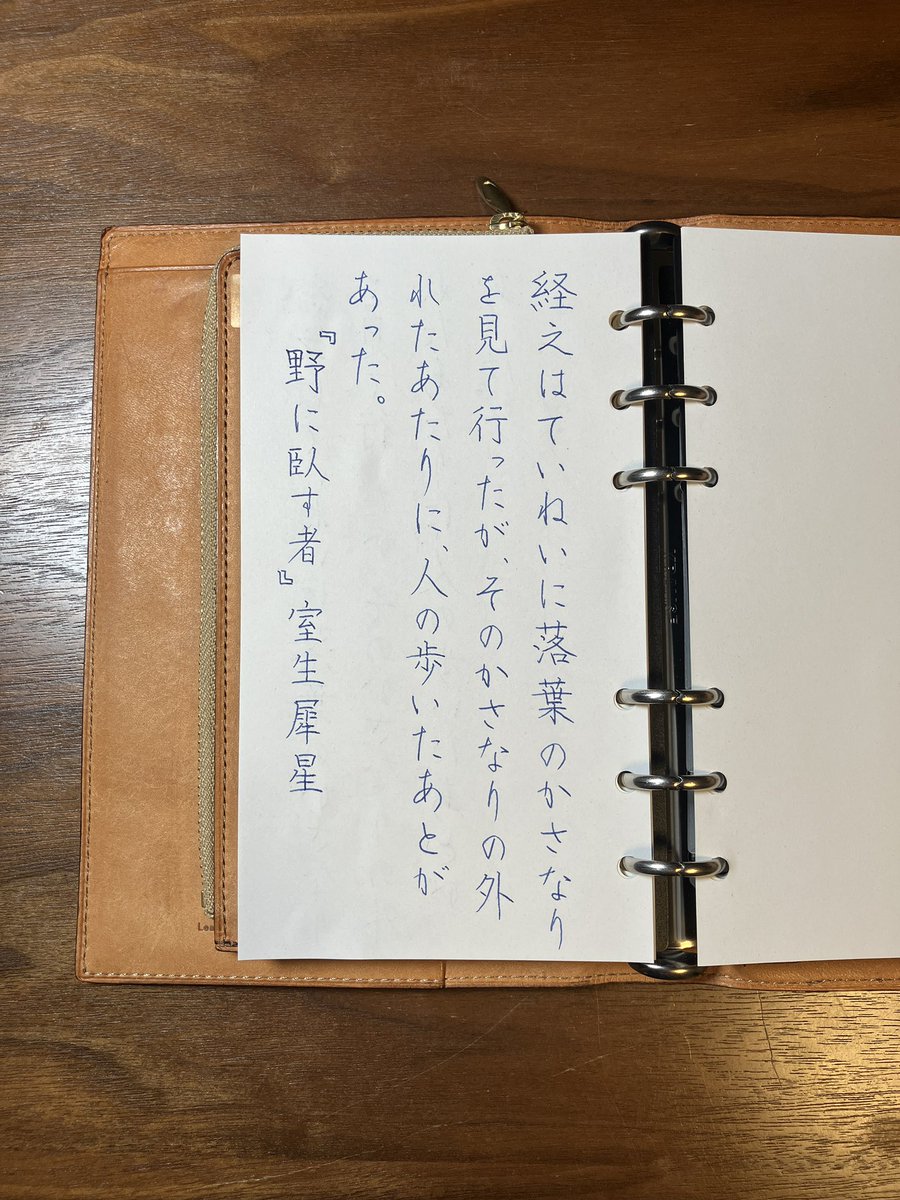 経えはていねいに落葉のかさなり
を見て行ったが、そのかさなりの外
れたあたりに、人の歩いたあとが
あった。
『野に臥す者』室生犀星